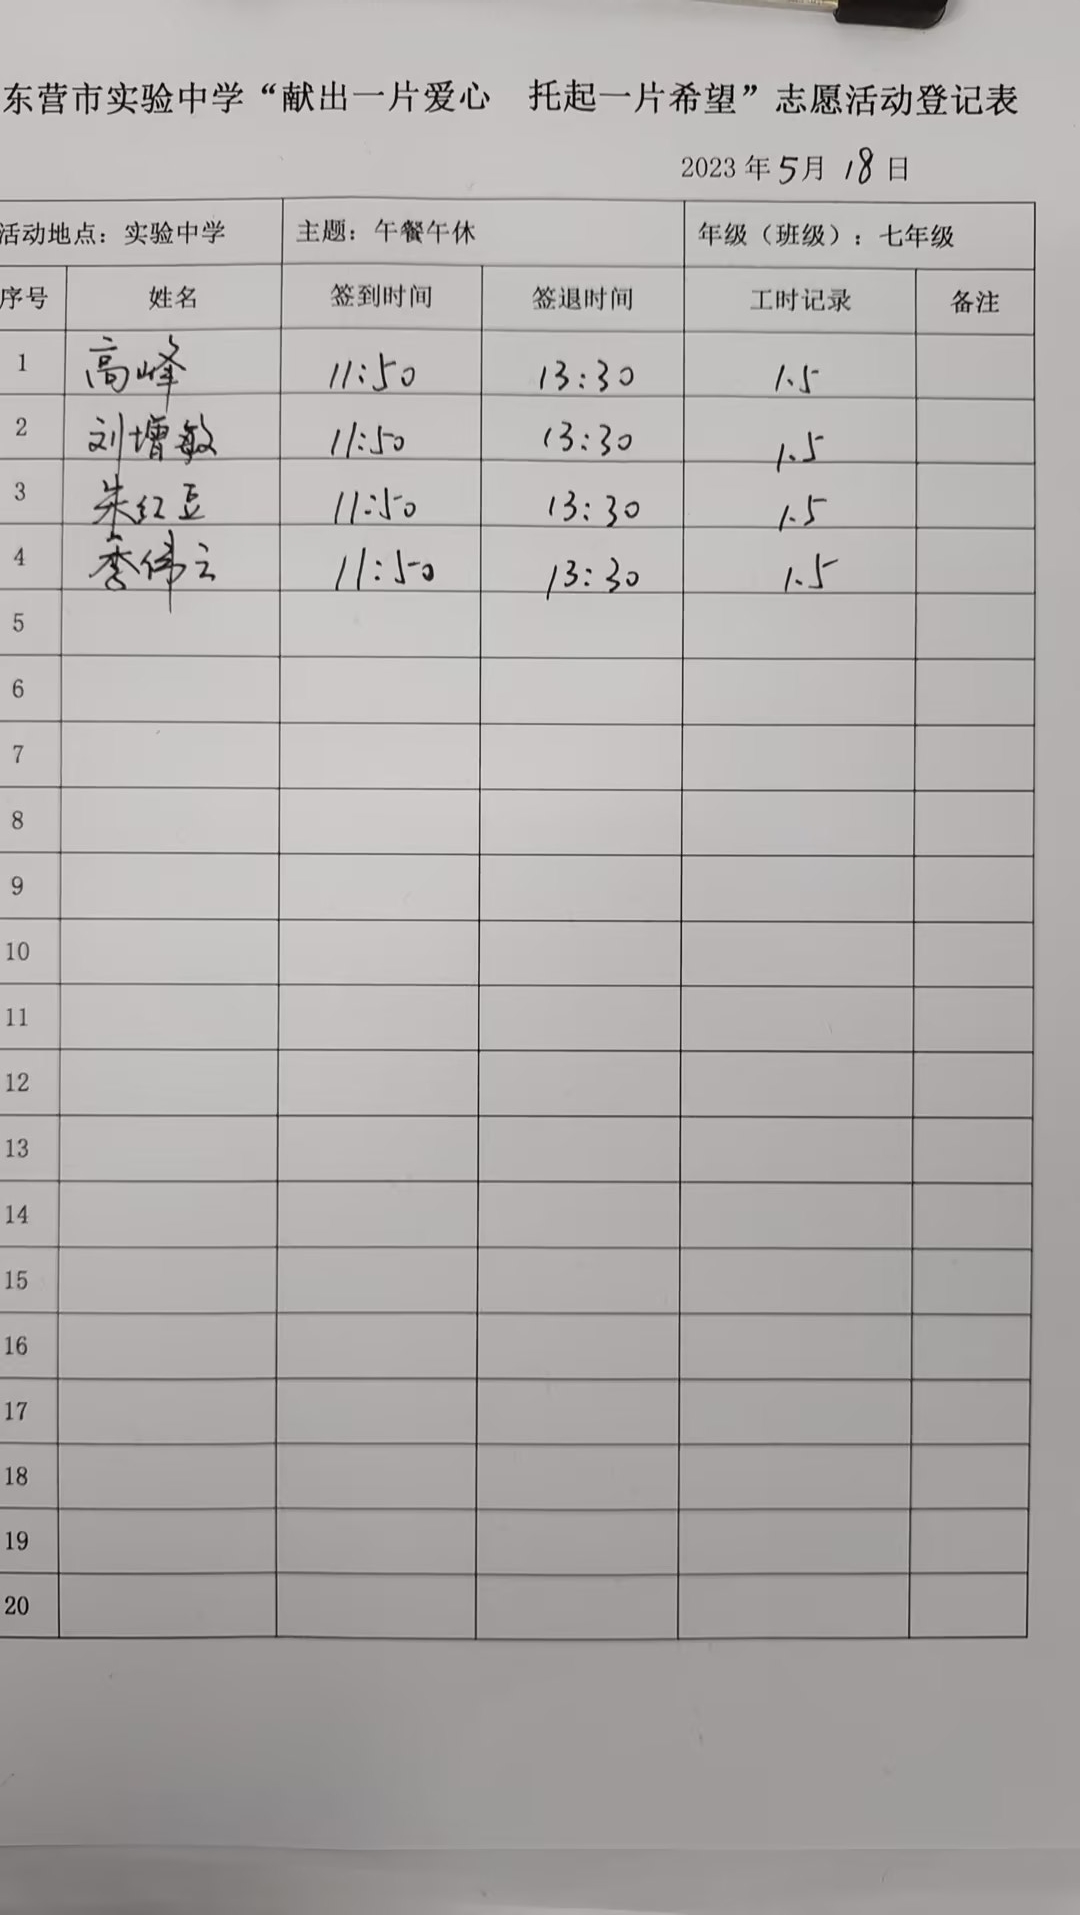 东营市实验中学“献出一片爱心　托起一片希望”志愿活动登记表
2023年5月18日
活动地点：实验中学 主题：午餐午休 年级（班级）：七年级
序号 姓名 签到时间 签退时间 工时记录 备注
1 高峰 11:50 13:30 1.5
2 刘增敏 11:50 13:30 1.5
3 朱红豆 11:50 13:30 1.5
4 李伟云 11:50 13:30 1.5
5
6
7
8
9
10
11
12
13
14
15
16
17
18
19
20